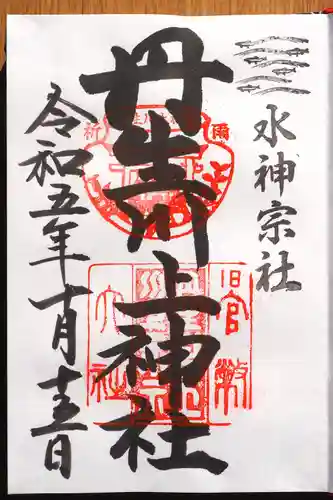 水神宗社
丹生川上神社
令和五年十月十五日
旧官幣
大社